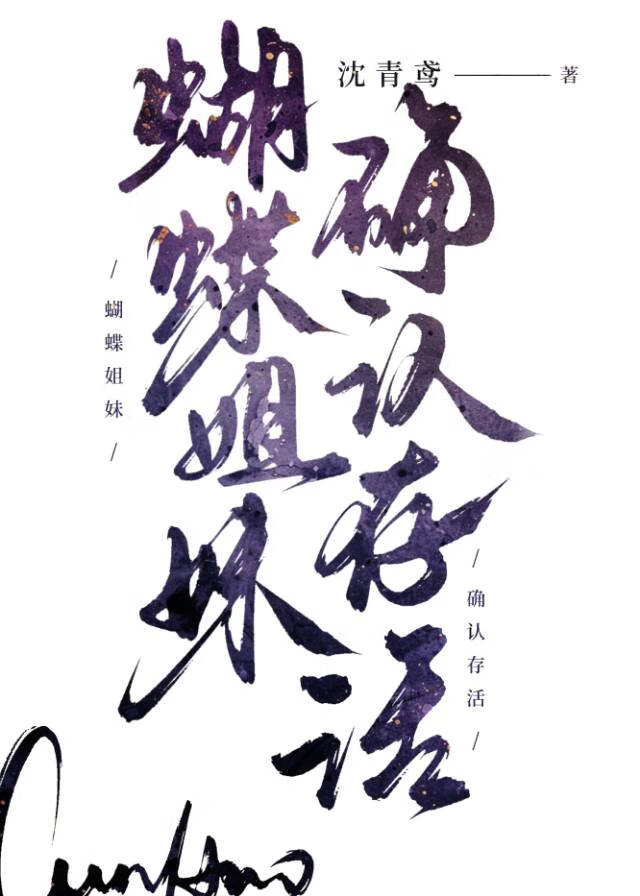 沈青鸢 著
蝴蝶姐妹
确认存活
蝴蝶姐妹
确认存活